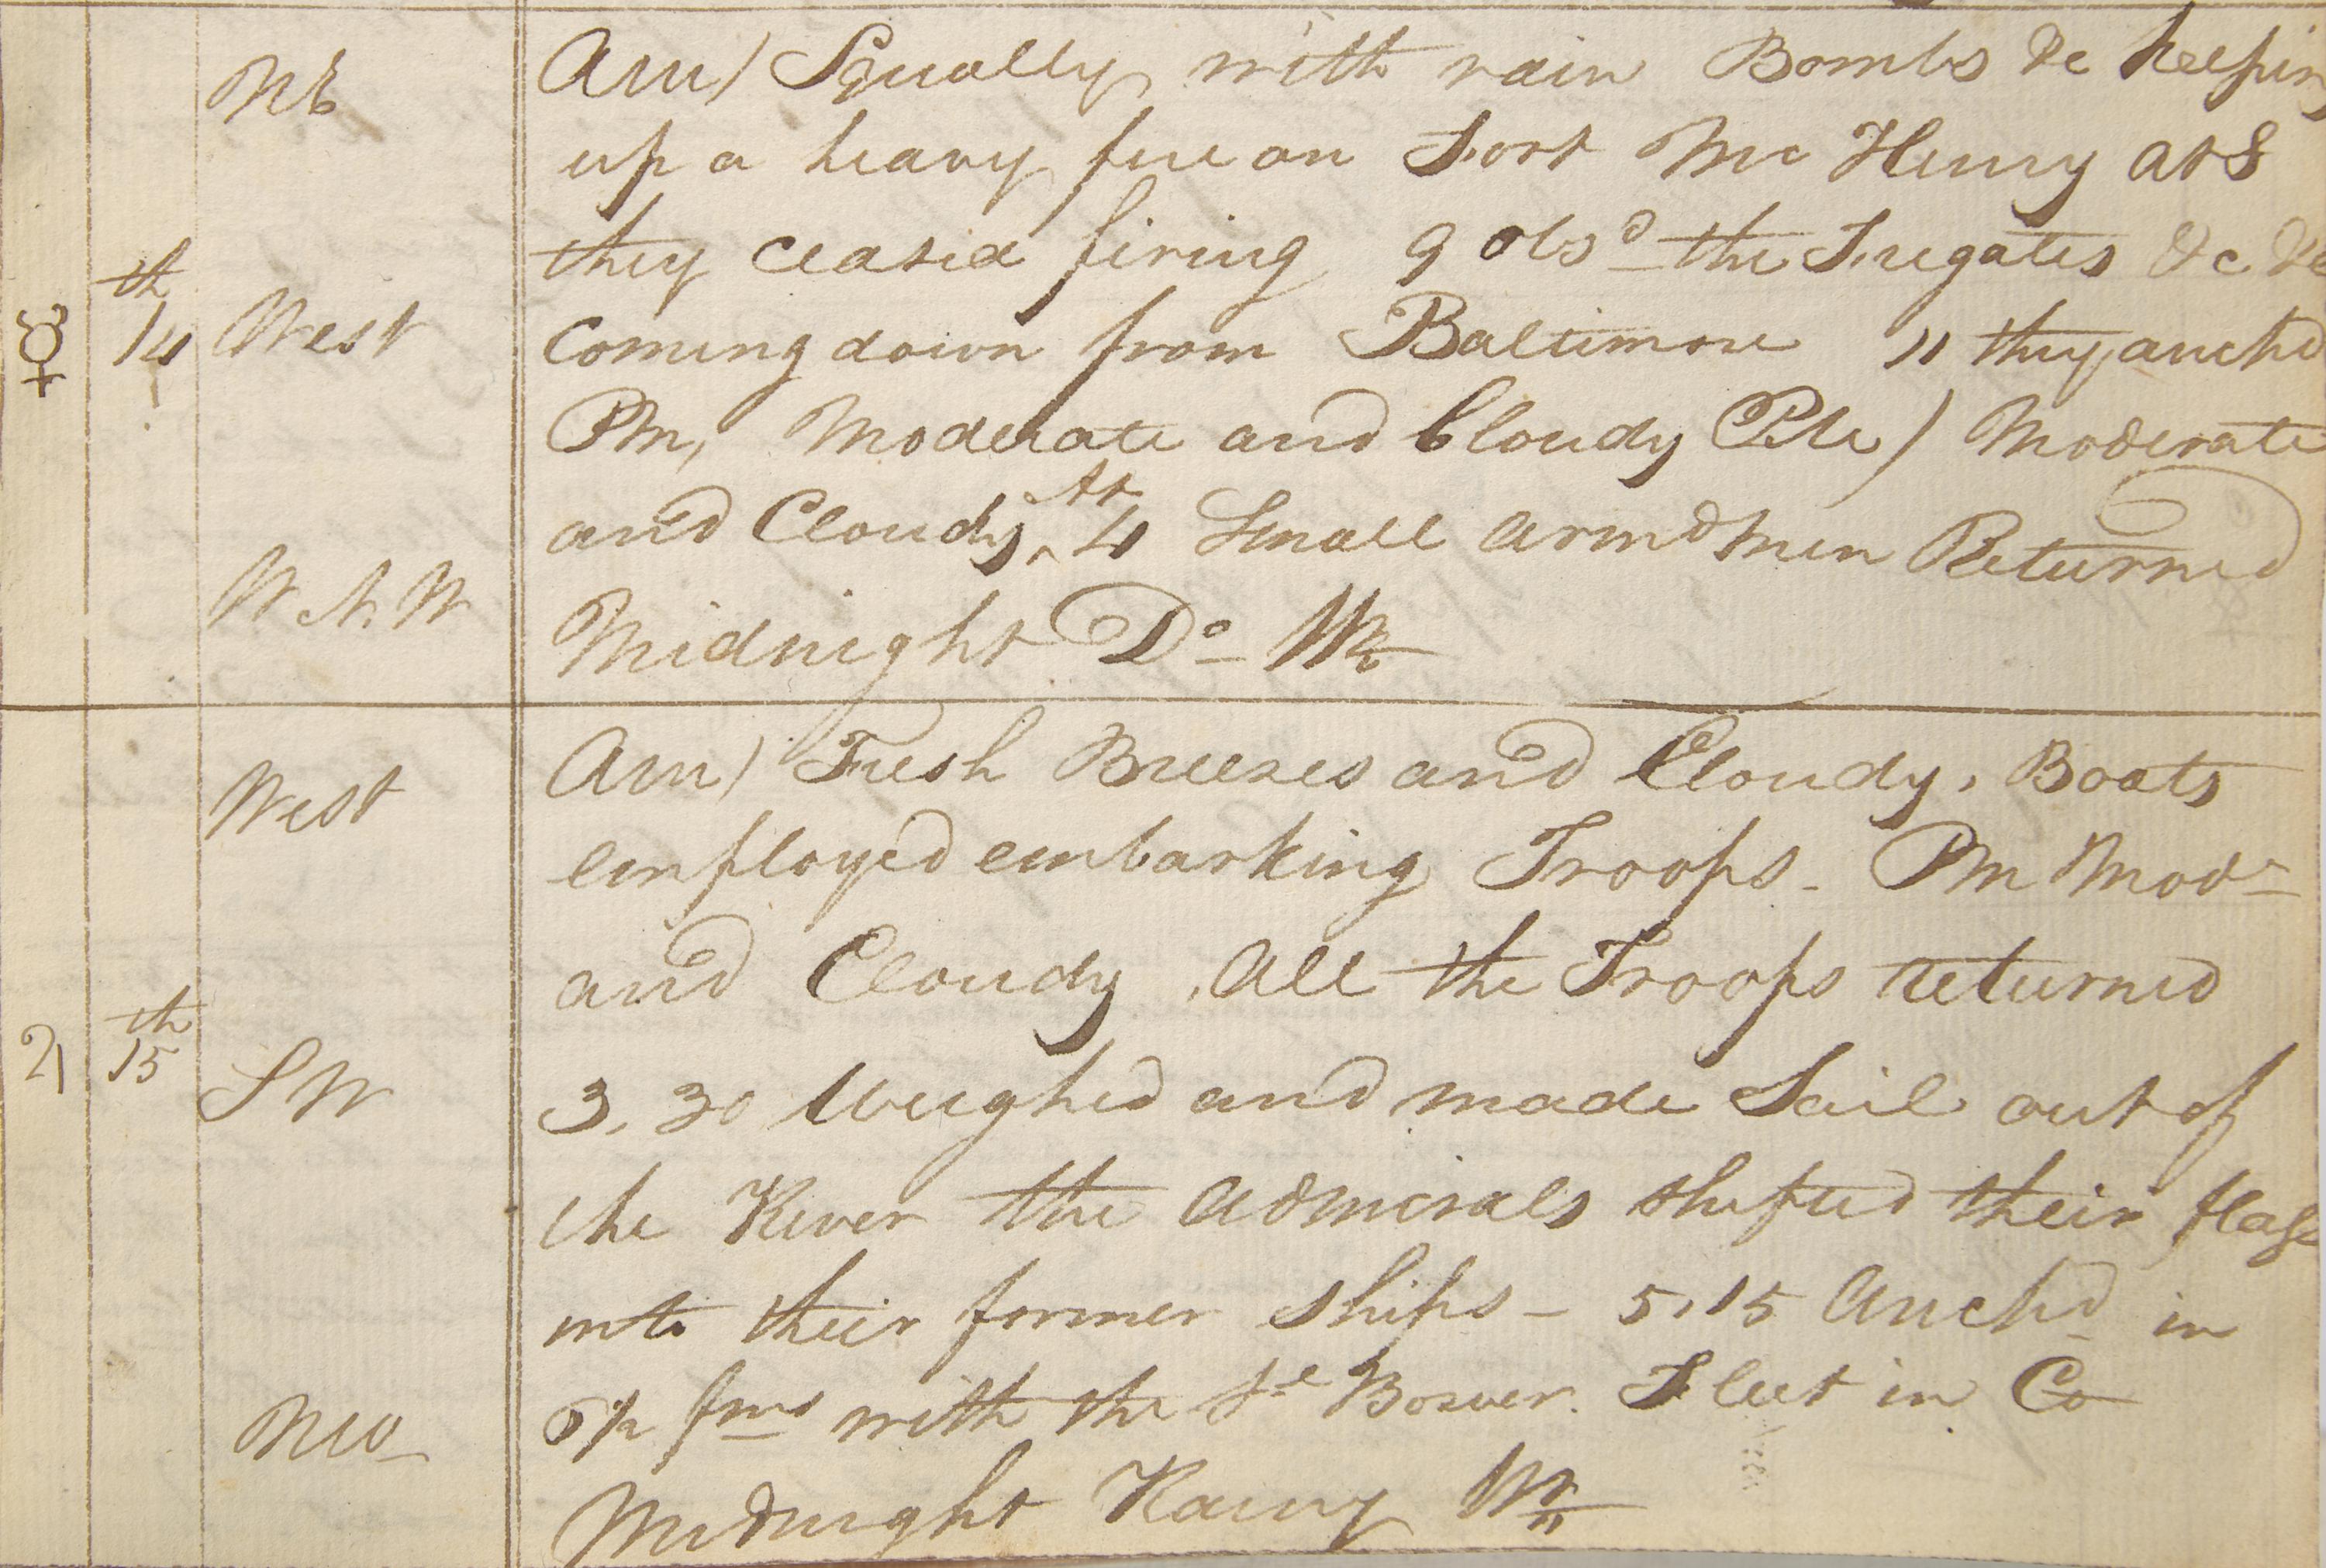 NE
Am) Squally with rain Bombs &c keeping
up a heavy fire on Fort Mc Henry at 8
they ceased firing 9 obsd the Fregates &c &c
☿ 14th West
coming down from Baltimore 11 they anchd
Pm, Moderate and Cloudy Pm) Moderate
and Cloudy, At 4 Small armd men Returned
W.N.W
Midnight Do Wr
West
Am) Fresh Breezes and Cloudy, Boats
employed embarking Troops - Pm Modr
and Cloudy, All the Troops returned
♃ 15th SW
3,30 Weighed and made Sail out of
the River the Admirals shifted their flags
into their former Ships - 5,15 Anchd in
fms with the Bower. Fleet in Co
NW
Midnight Rainy Wr